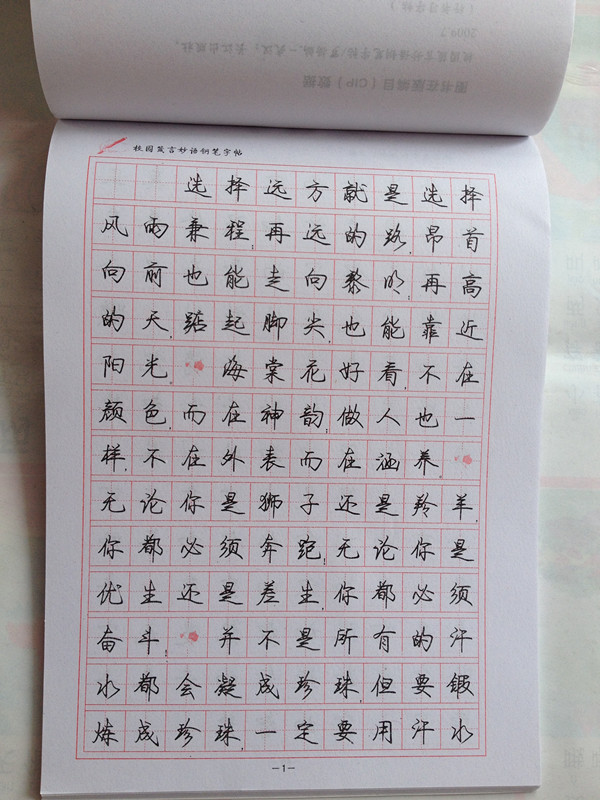 图书在版编目（CIP）数据
2009.7
校园箴言妙语钢笔字帖
选择远方就是选择
风雨兼程；再远的路，昂首
向前也能走向黎明；再高
的天，踮起脚尖，也能靠近
阳光。海棠花好看，不在
颜色，而在神韵；做人也一
样，不在外表而在涵养。
无论你是狮子还是羚羊，
你都必须奔跑；无论你是
优生还是差生，你都必须
奋斗！并不是所有的汗
水都会凝成珍珠，但要锻
炼成珍珠，一定要用汗水
—1—